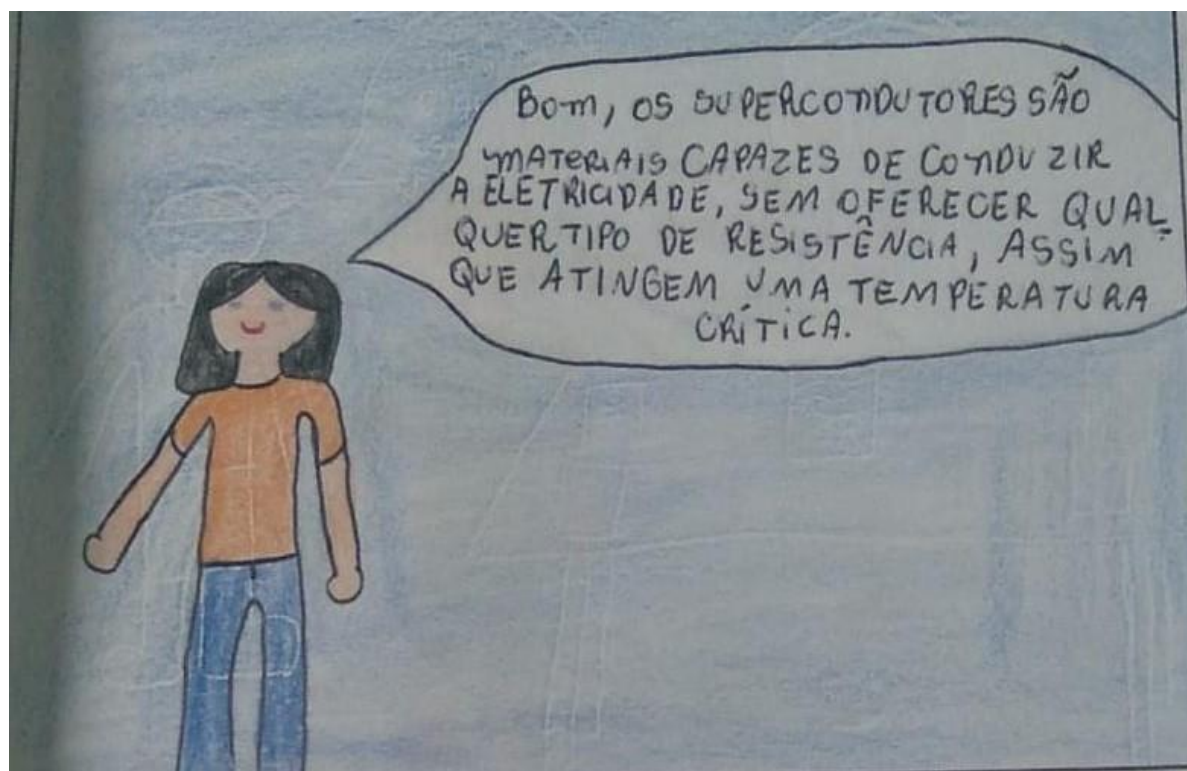 Bom, OS SUPERCONDUTORES SÃO
MATERIAIS CAPAZES DE CONDUZIR
A ELETRICIDADE, SEM OFERECER QUAL-
QUER TIPO DE RESISTÊNCIA, ASSIM
QUE ATINGEM UMA TEMPERATURA
CRÍTICA.